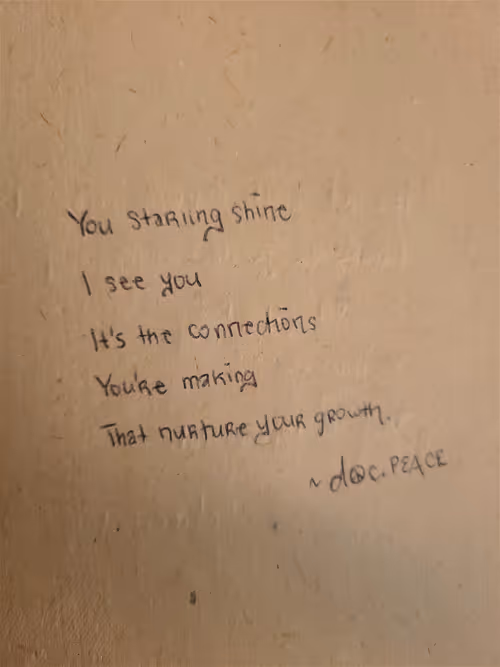 You starling shine
I see you
It's the connections
You're making
That nurture your growth.
~ d@c. PEACE